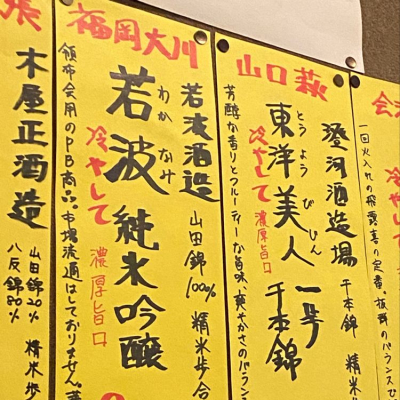 張
木屋正酒造
山田錦20% 精米歩
八反錦80%
福岡大川
若波酒造
山田錦100% 精米歩合
わかなみ
若波 純米吟醸
冷やして
濃厚旨口
頒布会用のPB商品。市場流通はしておりません。
山口萩
澄河酒造場
千本錦 精米
とうようびじん
東洋美人 一号 千本錦
冷やして
濃厚旨口
芳醇な香りとフルーティーな旨味、爽やかさのバラン
会
冷やして
一回火入れの飛露喜の定番。抜群のバランス